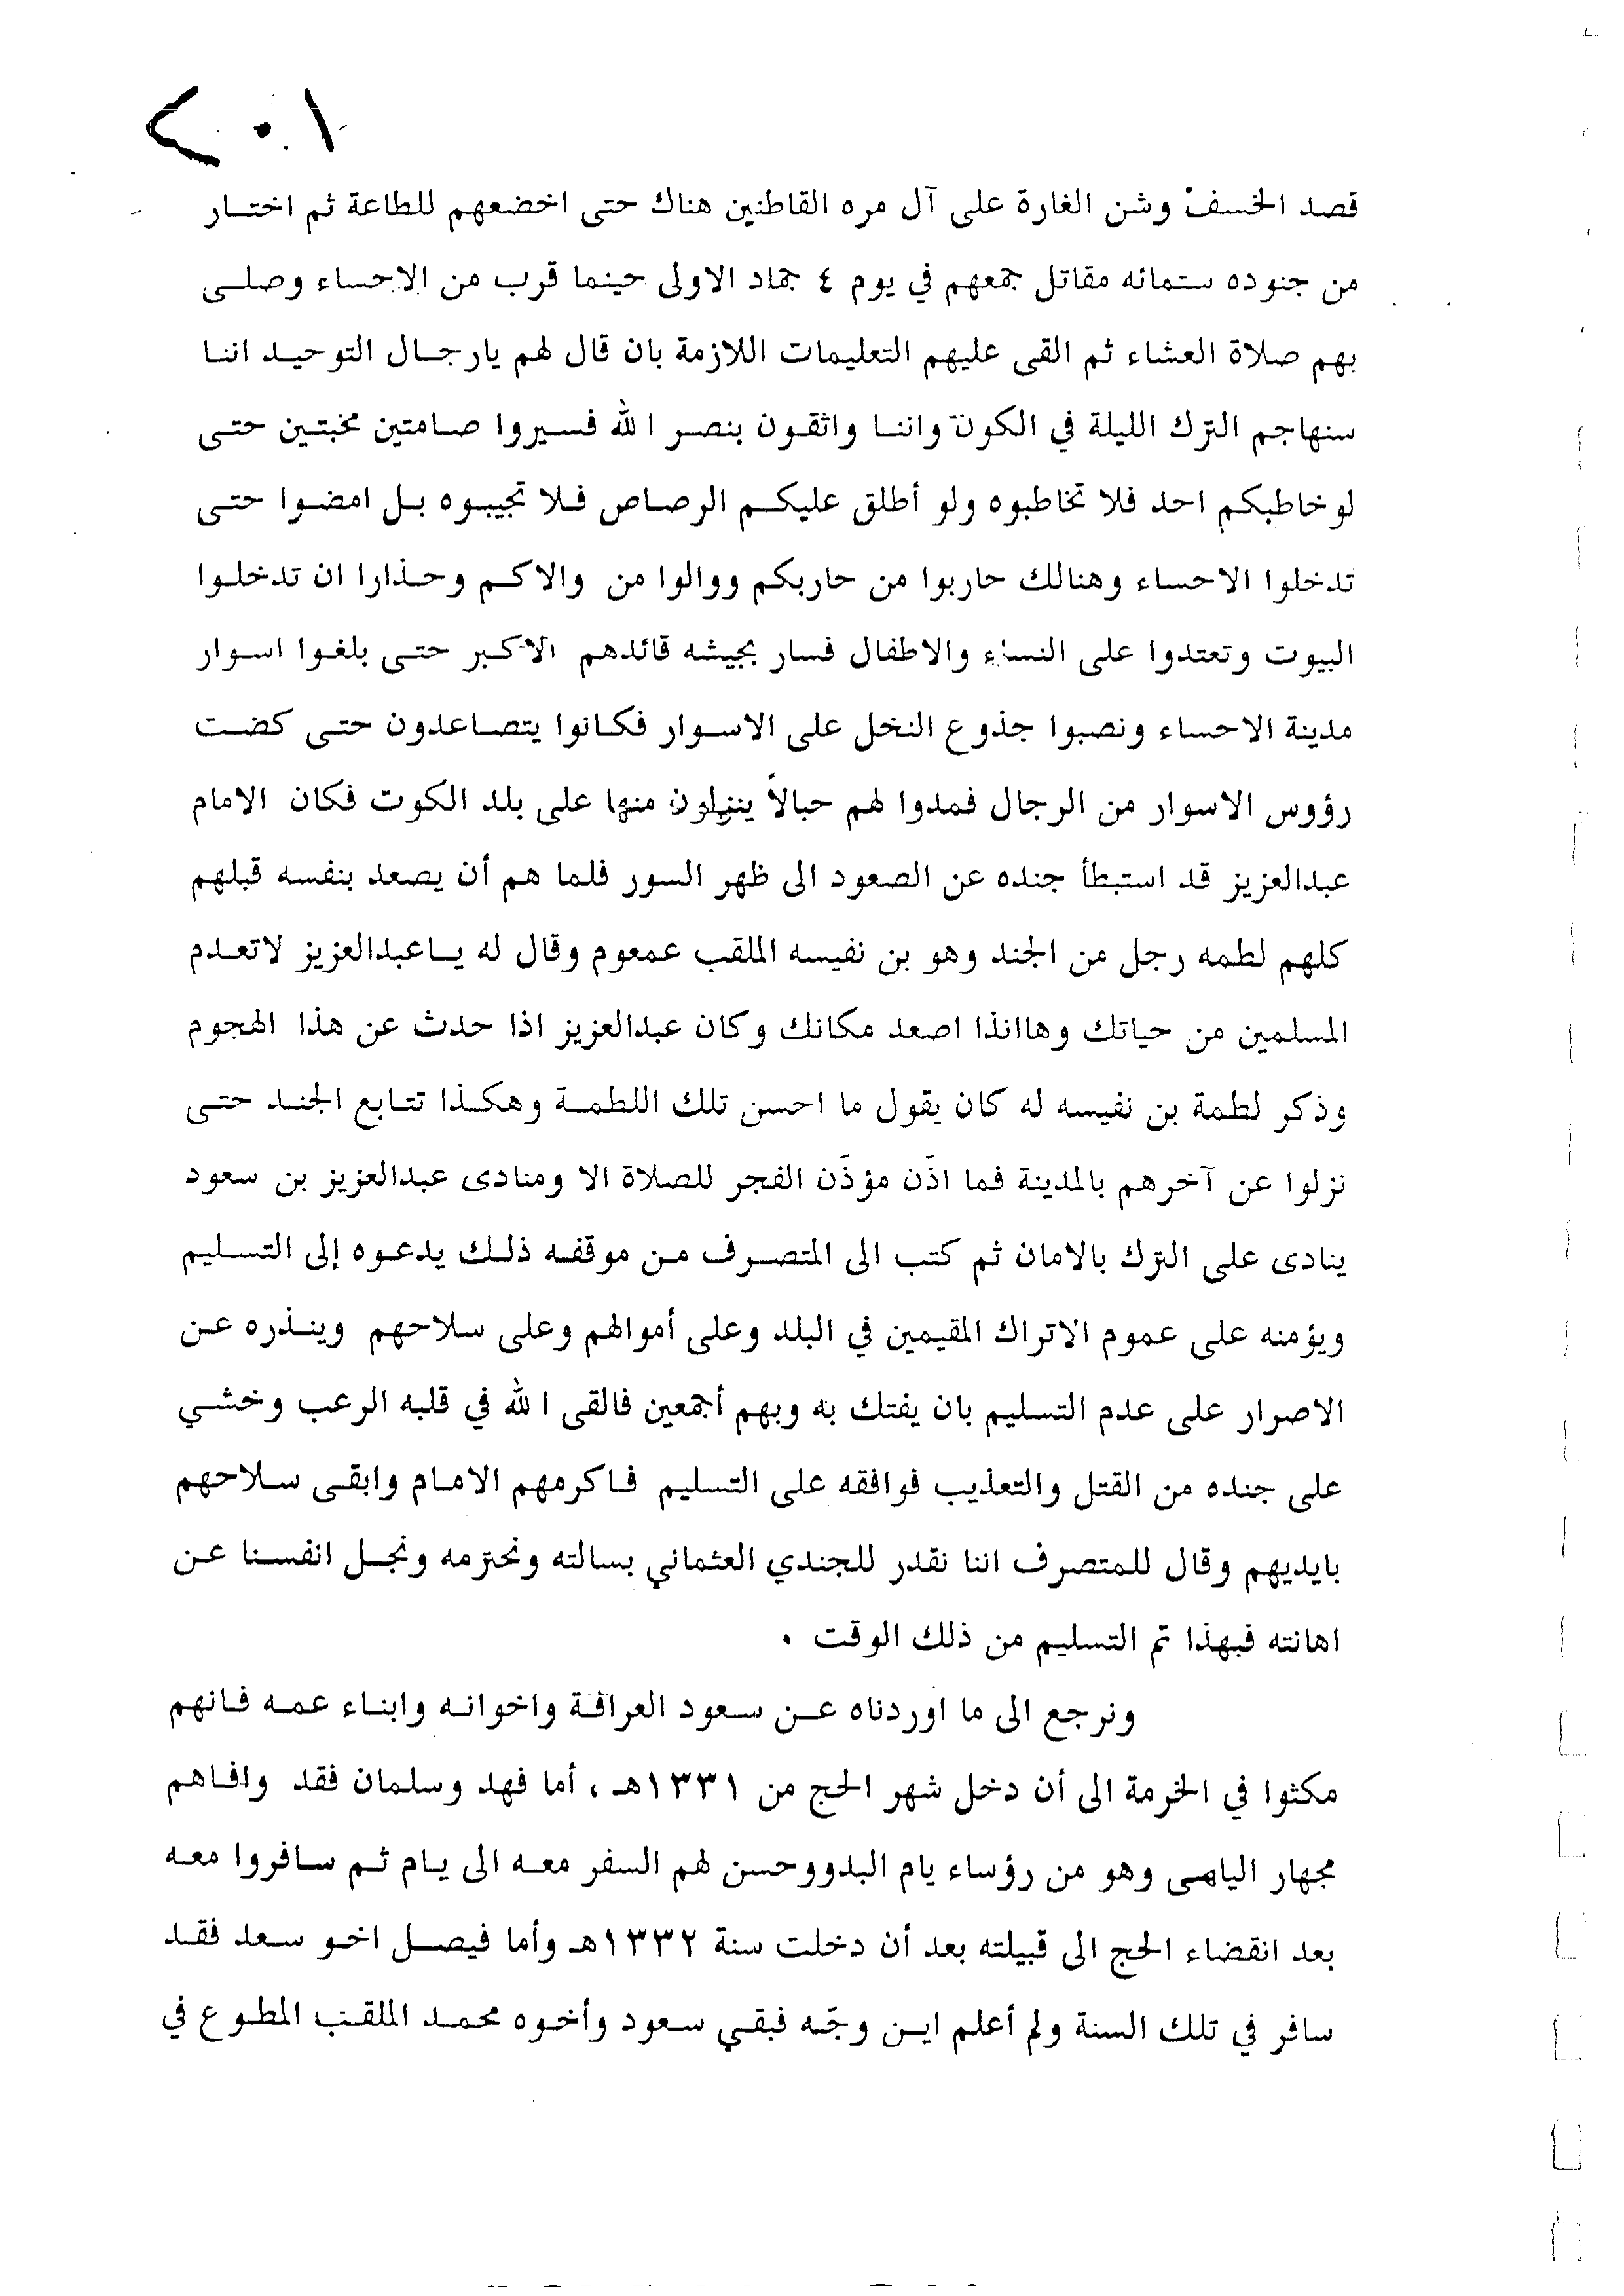 ٢٠١
قصد الخسف وشن الغارة على آل مره القاطنين هناك حتى اخضعهم للطاعة ثم اختار
من جنوده ستمائه مقاتل جمعهم في يوم ٤ جماد الاولى حينما قرب من الاحساء وصلى
بهم صلاة العشاء ثم القى عليهم التعليمات اللازمة بان قال لهم يارجال التوحيد اننا
سنهاجم الترك الليلة في الكوت واننا واثقون بنصر الله فسيروا صامتين مخبتين حتى
لو خاطبكم احد فلا تخاطبوه ولو أطلق عليكم الرصاص فلا تجيبوه بل امضوا حتى
تدخلوا الاحساء وهنالك حاربوا من حاربكم ووالوا من والاكم وحذارا ان تدخلوا
البيوت وتعتدوا على النساء والاطفال فسار بجيشه قائدهم الاكبر حتى بلغوا اسوار
مدينة الاحساء ونصبوا جذوع النخل على الاسوار فكانوا يتصاعدون حتى كضت
رؤوس الاسوار من الرجال فمدوا لهم حبالاً ينزلون منها على بلد الكوت فكان الامام
عبدالعزيز قد استبطأ جنده عن الصعود الى ظهر السور فلما هم أن يصعد بنفسه قبلهم
كلهم لطمه رجل من الجند وهو بن نفيسه الملقب عمعوم وقال له ياعبدالعزيز لاتعدم
المسلمين من حياتك وهاانذا اصعد مكانك وكان عبدالعزيز اذا حدث عن هذا الهجوم
وذكر لطمة بن نفيسه له كان يقول ما احسن تلك اللطمة وهكذا تتابع الجند حتى
نزلوا عن آخرهم بالمدينة فما اذّن مؤذّن الفجر للصلاة الا ومنادى عبدالعزيز بن سعود
ينادى على الترك بالامان ثم كتب الى المتصرف من موقفه ذلك يدعوه إلى التسليم
ويؤمنه على عموم الاتراك المقيمين في البلد وعلى أموالهم وعلى سلاحهم وينذره عن
الاصرار على عدم التسليم بان يفتك به وبهم أجمعين فالقى الله في قلبه الرعب وخشي
على جنده من القتل والتعذيب فوافقه على التسليم فاكرمهم الامام وابقى سلاحهم
بايديهم وقال للمتصرف اننا نقدر للجندي العثماني بسالته ونحترمه ونجل انفسنا عن
اهانته فبهذا تم التسليم من ذلك الوقت ٠
ونرجع الى ما اوردناه عن سعود العرافة واخوانه وابناء عمه فانهم
مكثوا في الخرمة الى أن دخل شهر الحج من ١٣٣١هـ ، أما فهد وسلمان فقد وافاهم
مجهار اليامى وهو من رؤساء يام البدو وحسن لهم السفر معه الى يام ثم سافروا معه
بعد انقضاء الحج الى قبيلته بعد أن دخلت سنة ١٣٣٢هـ وأما فيصل اخو سعد فقد
سافر في تلك السنة ولم أعلم اين وجّه فبقي سعود وأخوه محمد الملقب المطوع في